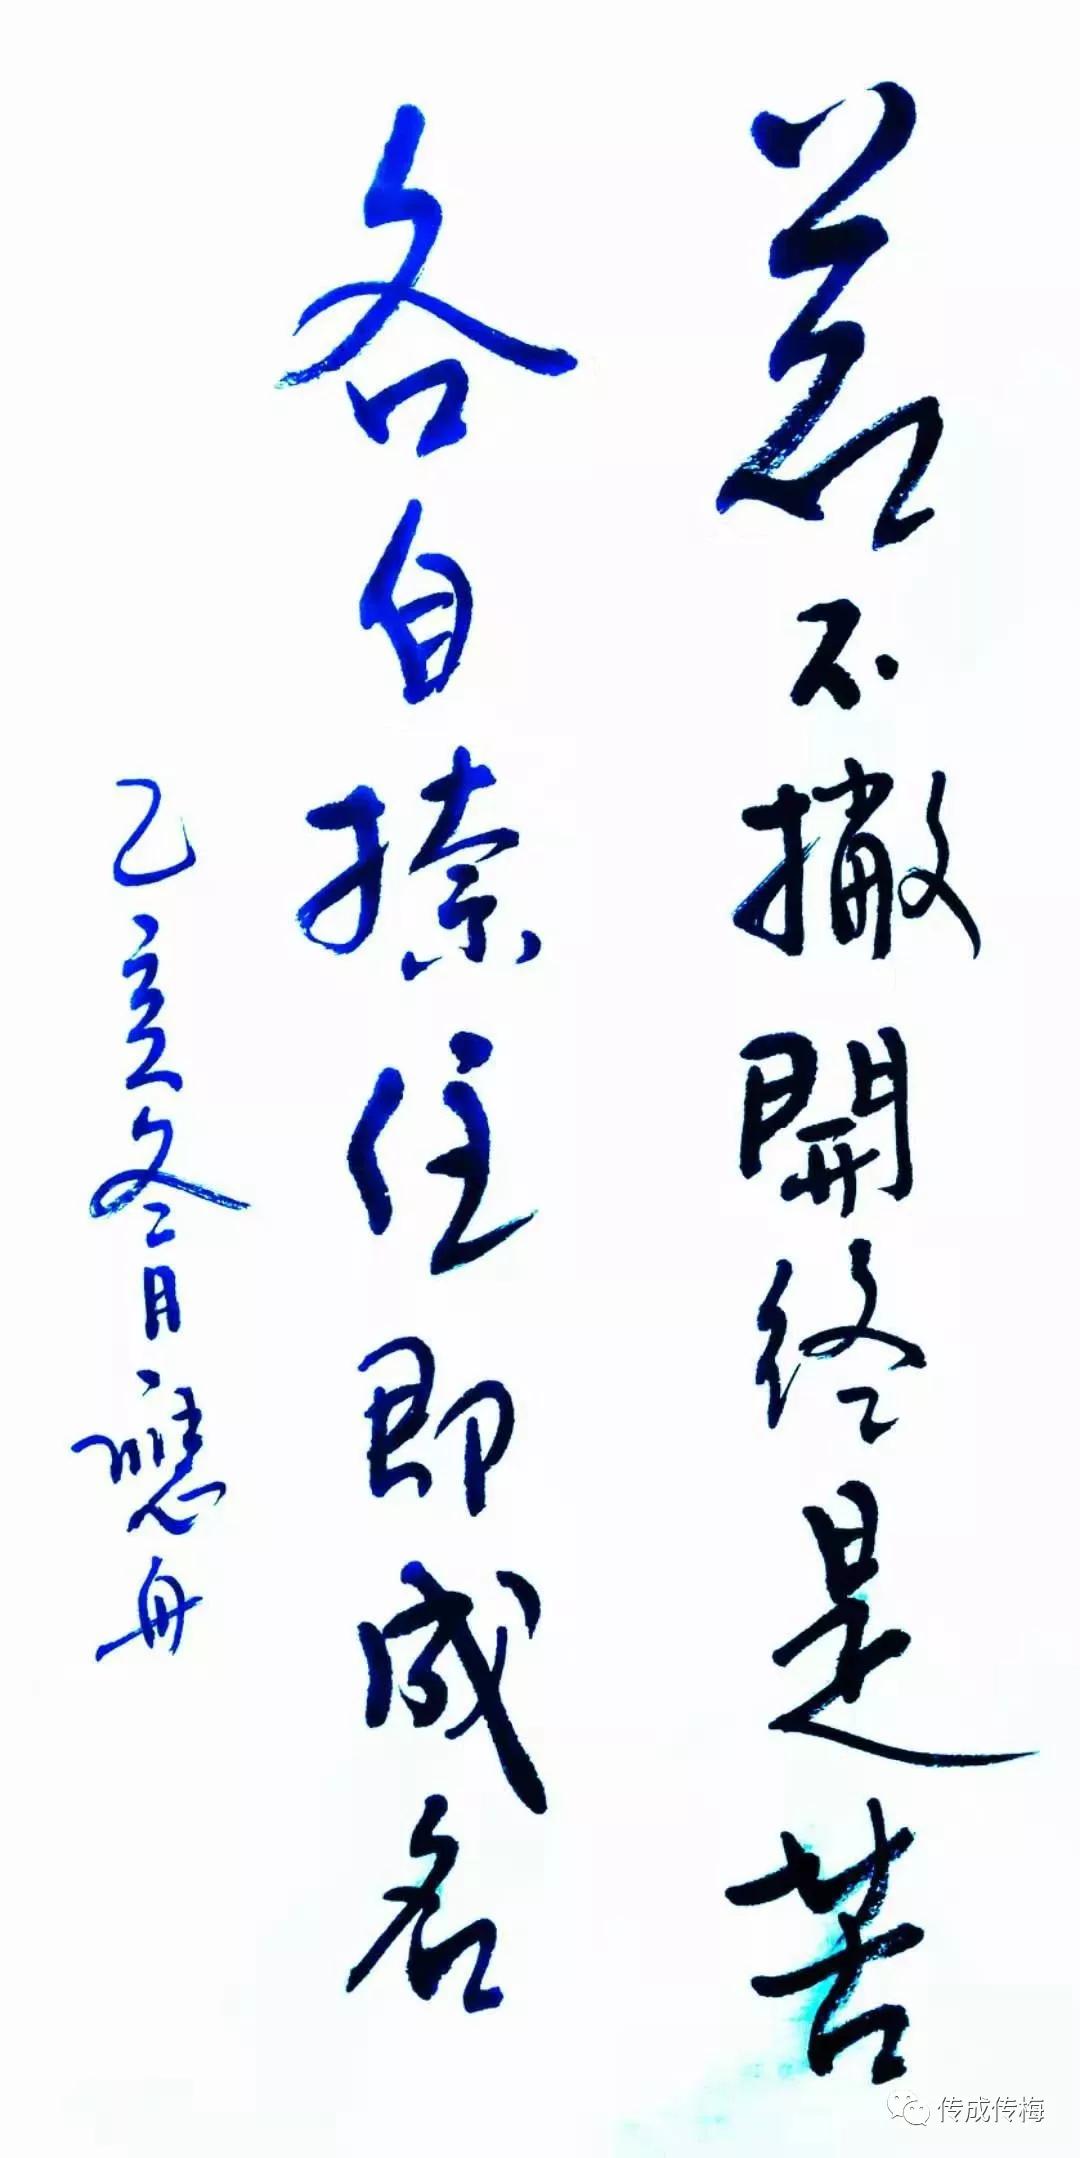 若不撇開終是苦
各自捺住即成名
己亥冬月應舟
传成传梅